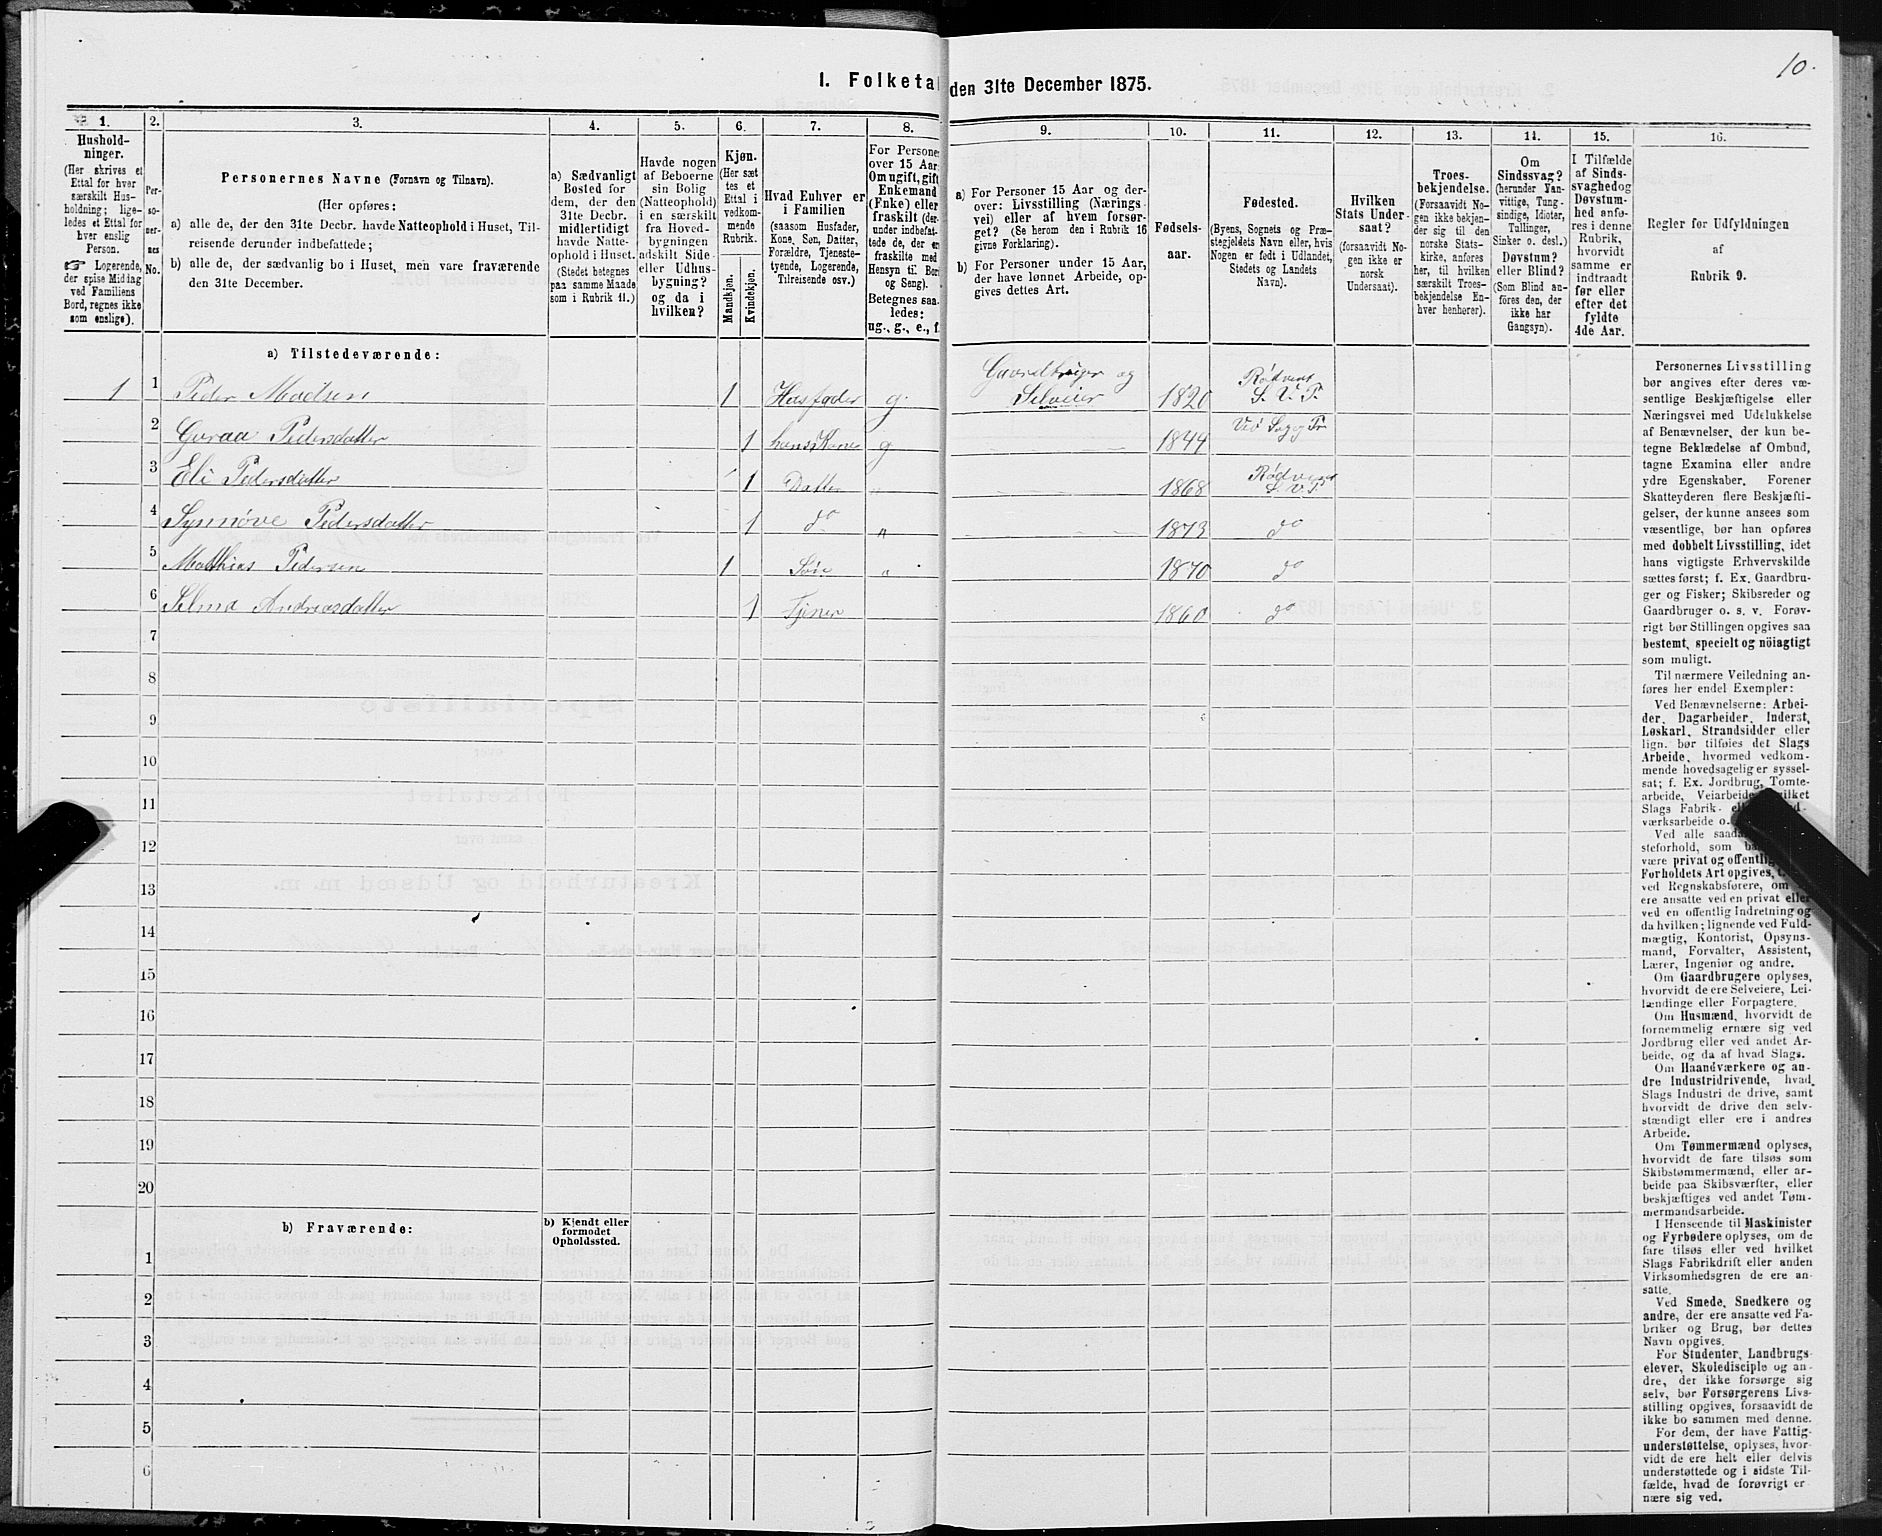 10.
I. Folketal
den 31te December 1875.
1.
2.
3.
4.
5.
6.
7.
8.
9.
10.
11.
12.
13.
14.
15.
16.
Hushold-
ninger.
(Her skrives et
Ettal for hver
særskilt Hus-
holdning; lige-
ledes et Ettal for
hver enslig
Person.
☞ Logerende,
der spise Middag
ved Familiens
Bord, regnes ikke
som enslige).
Per-
so-
ner-
nes
No.
Personernes Navne (Fornavn og Tilnavn).
(Her opføres:
a) alle de, der den 31te Decbr. havde Natteophold i Huset, Til-
reisende derunder indbefattede;
b) alle de, der sædvanlig bo i Huset, men vare fraværende
den 31te December.
a) Sædvanligt
Bosted for
dem, der den
31te Decbr.
midlertidigt
havde Natte-
ophold i Huset.
(Stedet betegnes
paa samme Maade
som i Rubrik 11.)
Havde nogen
af Beboerne
sin Bolig
(Natteophold)
i en særskilt
fra Hoved-
bygningen
adskilt Side-
eller Udhus-
bygning?
og da i
hvilken?
Kjøn.
(Her sæt
tes et
Ettal i
vedkom-
mende
Rubrik.
Mandkjøn.
Kvindekjøn.
Hvad Enhver er
i Familien
(saasom Husfader,
Kone, Søn, Datter,
Forældre, Tjeneste-
tyende, Logerende,
Tilreisende osv.)
For Persone
over 15 Aar
Om ugift, gift
Enkemand
(Enke) eller
fraskilt (der-
under indbefat-
tede de, der er
fraskilte med
Hensyn til Bor
og Seng).
Betegnes saa-
ledes:
ug., g., e., f.
a) For Personer 15 Aar og der-
over: Livsstilling (Nærings-
vei) eller af hvem forsør-
get? (Se herom den i Rubrik 16
givne Forklaring).
b) For Personer under 15 Aar,
der have lønnet Arbeide, op-
gives dettes Art.
Fødsels-
aar.
Fødested.
(Byens, Sognets og Præ-
stegjeldets Navn eller, hvis
Nogen er født i Udlandet,
Stedets og Landets
Navn).
Hvilken
Stats Under-
saat?
(forsaavidt No-
gen ikke er
norsk
Undersaat).
Troes-
bekjendelse.
(Forsaavidt No-
gen ikke bekjen-
der sig til den
norske Stats-
kirke, anføres
her, til hvilken
særskilt Troes-
bekjendelse En-
hver henhører).
Om
Sindssvag?
(herunder Van-
vittige, Tung-
sindige, Idioter,
Tullinger,
Sinker o. desl.)
Døvstum?
eller Blind?
(Som Blind an-
føres den, der
ikke har
Gangsyn).
I Tilfælde
af Sinds-
svaghed og
Døvstum-
hed anfø-
res i denne
Rubrik,
hvorvidt
samme er
indtraadt
før eller
efter det
fyldte
4de Aar.
Regler for Udfyldningen
af
Rubrik 9.
a) Tilstedeværende:
1 1 Peder Madsen 1 Husfader g. Gaardbruger og Selveier 1820 Rødven S. V. P.
2 Guraa Pedersdatter 1 hans Kone g 1844
3 Eli Pedersdatter 1 Datter " 1868 Rødven S. V. P.
4 Synnøve Pedersdatter 1 do " 1873 do
5 Matthias Pedersen 1 Søn " 1870 do
6 Selma Andreasdatter 1 Tjener 1860 do
7
8
9
10
11
12
13
14
15
16
17
18
19
20
b) Fraværende:
b) Kjendt eller
formodet
Opholdssted.
1
2
3
4
5
6
Personernes Livsstilling
bør angives efter deres væ-
sentlige Beskjæftigelse eller
Næringsvei med Udelukkelse
af Benævnelser, der kun be-
tegne Beklædelse af Ombud,
tagne Examina eller andre
ydre Egenskaber. Forener
Skatteyderen flere Beskjæfti-
gelser, der kunne ansees som
væsentlige, bør han opføres
med dobbelt Livsstilling, idet
hans vigtigste Erhvervskilde
sættes først; f. Ex. Gaardbru-
ger og Fisker; Skibsreder og
Gaardbruger o. s. v. Forøv-
rigt bør Stillingen opgives saa
bestemt, specielt og nöiagtigt
som muligt.
Til nærmere Veiledning an-
føres her endel Exempler:
Ved Benævnelserne: Arbei-
der, Dagarbeider, Inderst,
Løskarl, Strandsidder eller
lign. bør tilføies det Slags
Arbeide, hvormed vedkom-
mende hovedsagelig er syssel-
sat; f. Ex. Jordbrug, Tomte-
arbeide, Veiarbeide,
Slags Fabrik-
værksarbeide o.
Ved alle
steforhold, som
være privat og
Forholdets Art opgives,
ved Regnskabsførere, om
ere ansatte ved en privat eller
ved en offentlig Indretning og
da hvilken; lignende ved Fuld-
mægtig, Kontorist, Opsyns-
mand, Forvalter, Assistent,
Lærer, Ingeniør og andre.
Om Gaardbrugere oplyses,
hvorvidt de ere Selveiere, Lei-
lændinge eller Forpagtere.
Om Husmænd, hvorvidt de
fornemmelig ernære sig ved
Jordbrug eller ved andet Ar-
beide, og da af hvad Slags.
Om Haandværkere og an-
dre Industridrivende, hvad
Slags Industri de drive, samt
hvorvidt de drive den selv-
stændigt eller ere i andres
Arbeide.
Om Tømmermænd oplyses,
hvorvidt de fare tilsøs som
Skibstømmermænd, eller ar-
beide paa Skibsværfter, eller
beskjæftiges ved andet Tøm-
mermandsarbeide.
I Henseende til Maskinister
og Fyrbødere oplyses, om de
fare tilsøs eller ved hvilket
Slags Fabrikdrift eller anden
Virksomhedsgren de ere an-
satte.
Ved Smede, Snedkere og
andre, der ere ansatte ved Fa-
briker og Brug, bør dettes
Navn opgives.
For Studenter, Landbrugs-
elever, Skoledisciple og an-
dre, der ikke forsørge sig
selv, bør Forsørgerens Livs-
stilling opgives, forsaavidt de
ikke bo sammen med denne.
For dem, der have Fattig-
understøttelse, oplyses, hvor-
vidt de ere helt eller delvis
understøttede og i sidste Til-
fælde, hvad de forøvrigt er-
nære sig ved.